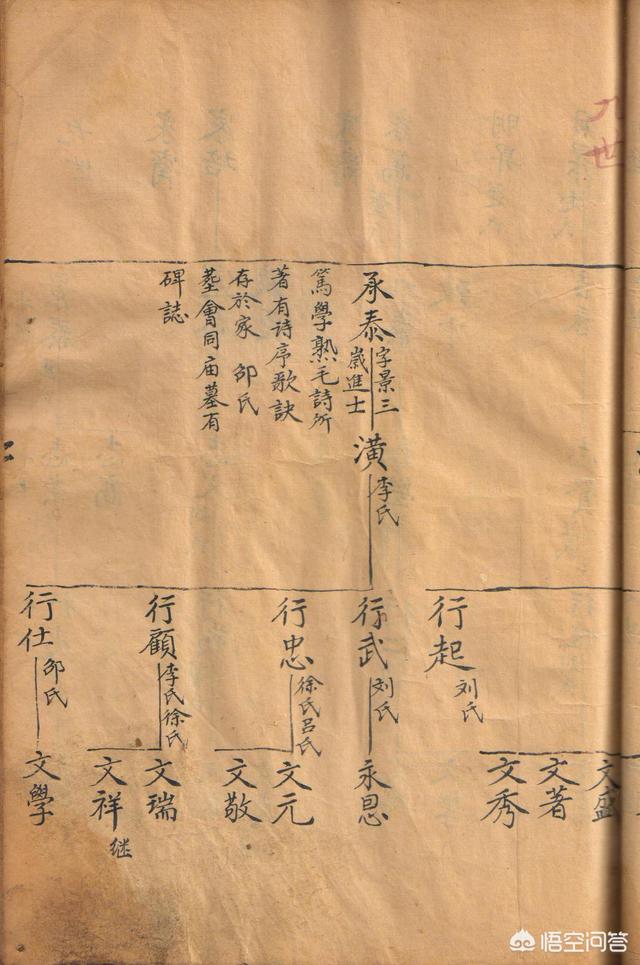 九世
承泰
字景三
歲進士
篤學熟毛詩所
著有诗序歌訣
存於家 邵氏
塟會同庙墓有
碑誌
潢
李氏
行起
刘氏
行武
刘氏
行忠
徐氏吕氏
行顧
李氏徐氏
行仕
邵氏
文盛
文著
文秀
永恩
文元
文敬
文瑞
文祥
继
文學
悟空问答